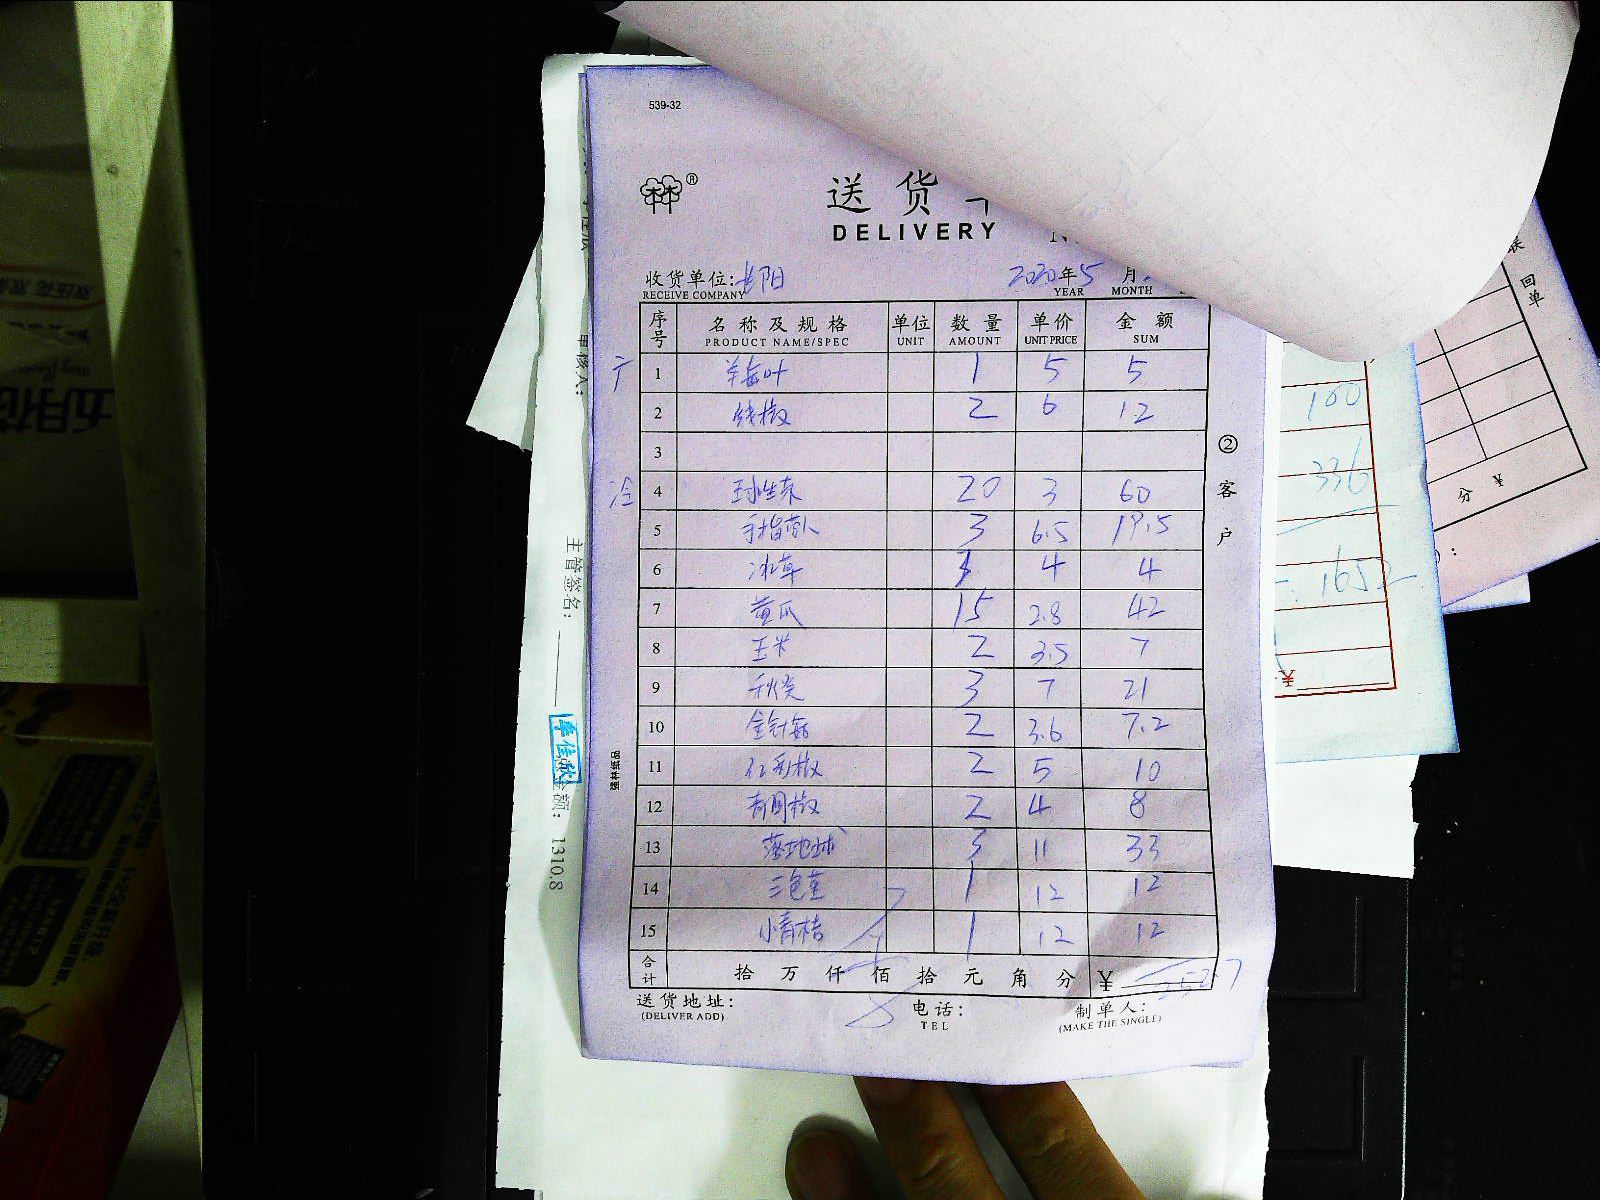 539-32
®
送 货
DELIVERY
收货单位: 长阳
RECEIVE COMPANY
2020年5月
YEAR MONTH
序号 名称及规格 单位 数量 单价 金额
PRODUCT NAME/SPEC UNIT AMOUNT UNIT PRICE SUM
1 5 5
2 2 6 12
3
冷 4 球生菜 20 3 60
5 手指萝卜 3 6.5 19.5
6 冰草 1 4 4
7 黄瓜 15 2.8 42
8 玉米 2 3.5 7
9 秋葵 3 7 21
10 金针菇 2 3.6 7.2
11 红彩椒 2 5 10
12 青圆椒 2 4 8
13 3 11 33
14 三色堇 1 12 12
15 小青桔 1 12 12
合计 拾 万 仟 佰 拾 元 角 分 ¥ 252.7
送货地址: 电话: 制单人:
(DELIVER ADD) TEL (MAKE THE SINGLE)
② 客户
主管签名:
审核人:
金额: 1310.8
100
336
1652
回单
分 ¥